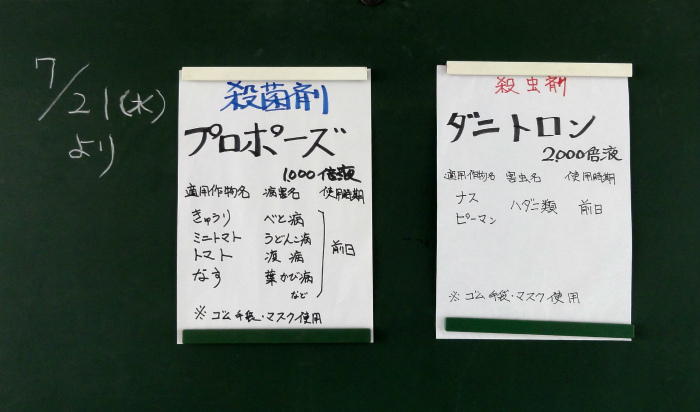 7/21(水)
より
殺菌剤
プロポーズ
1,000倍液
適用作物名 病害名 使用時期
きゅうり べと病
ミニトマト うどんこ病
トマト 疫病
なす 葉かび病
など
前日
※ ゴム手袋・マスク使用
殺虫剤
ダニトロン
2,000倍液
適用作物名 害虫名 使用時期
ナス
ピーマン
ハダニ類 前日
※ ゴム手袋・マスク使用